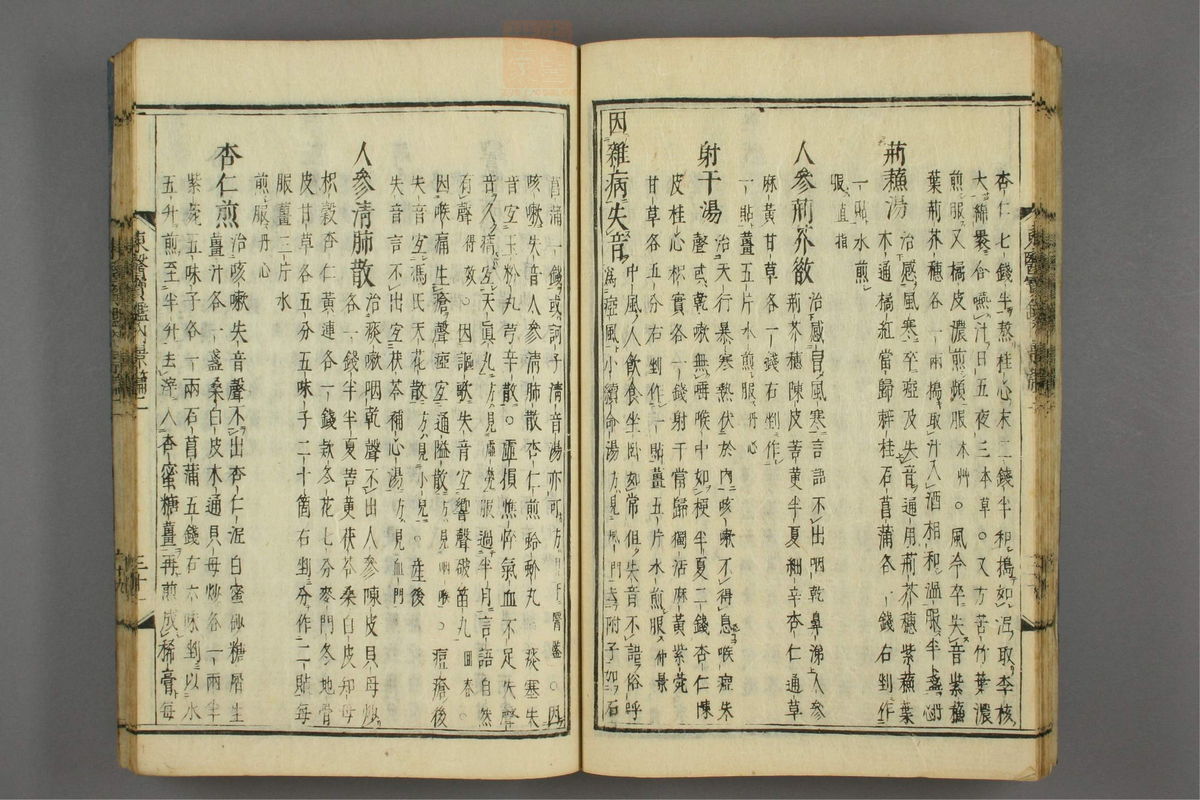 杏仁七錢半熬桂心末二錢半和搗如泥取李核
大綿裹含嚥汁日五夜三本草○又方苦竹葉濃
煎服又橘皮濃煎頻服本艸○風冷卒失音紫蘇
葉荊芥穗各一兩搗取汁入酒相和溫服半盞
荊蘇湯治感風寒卒瘂及失音通用荊芥穗紫蘇葉
木通橘紅當歸辣桂石菖蒲各一錢右剉作
一貼水煎
服直指
人參荊芥散治感冒風寒言語不出咽乾鼻涕人參
荊芥穗陳皮苦黄半夏細辛杏仁通草
麻黄甘草各一錢右剉作
一貼薑五片水煎服丹心
射干湯治天行暴寒熱伏於內咳嗽不得息喉瘂失
聲或乾嗽無唾喉中如梗半夏二錢杏仁陳
皮桂心枳實各一錢射干當歸獨活麻黄紫菀
甘草各五分右剉作一貼薑五片水煎服仲景
因雜病失音中風人飲食坐卧如常但失音不語俗呼
爲瘂風小續命湯方見風門去附子加石
菖蒲一錢或訶子清音湯亦可方見上醫鑑○因
咳嗽失音人參清肺散杏仁煎蛤蚧丸痰塞失
音宜玉粉丸芎辛散○虛損憔悴氣血不足失聲
音久宜天眞丸方見虛勞服過半月言語自然
有聲得效○因謳歌失音宜響聲破笛丸回春○
因喉痛生瘡聲瘂宜通隘散方見咽喉○痘瘡後
失音宜馮氏天花散方見小兒○產後
失音言不出宜茯苓補心湯方見血門
人參清肺散治痰嗽咽乾聲不出人參陳皮貝母炒
各一錢半半夏苦黄茯苓桑白皮知母
枳殼杏仁黄連各一錢款冬花七分麥門冬地骨
皮甘草各五分五味子二十箇右剉分作二貼每
服薑三片水
煎服丹心
杏仁煎治咳嗽失音聲不出杏仁泥白蜜砂糖屑生
薑汁各一盞桑白皮木通貝母炒各一兩半
紫菀五味子各一兩石菖蒲五錢右六味剉以水
五升煎至半升去滓入杏蜜糖薑再煎成稀膏每
東醫寶鑑內景篇二